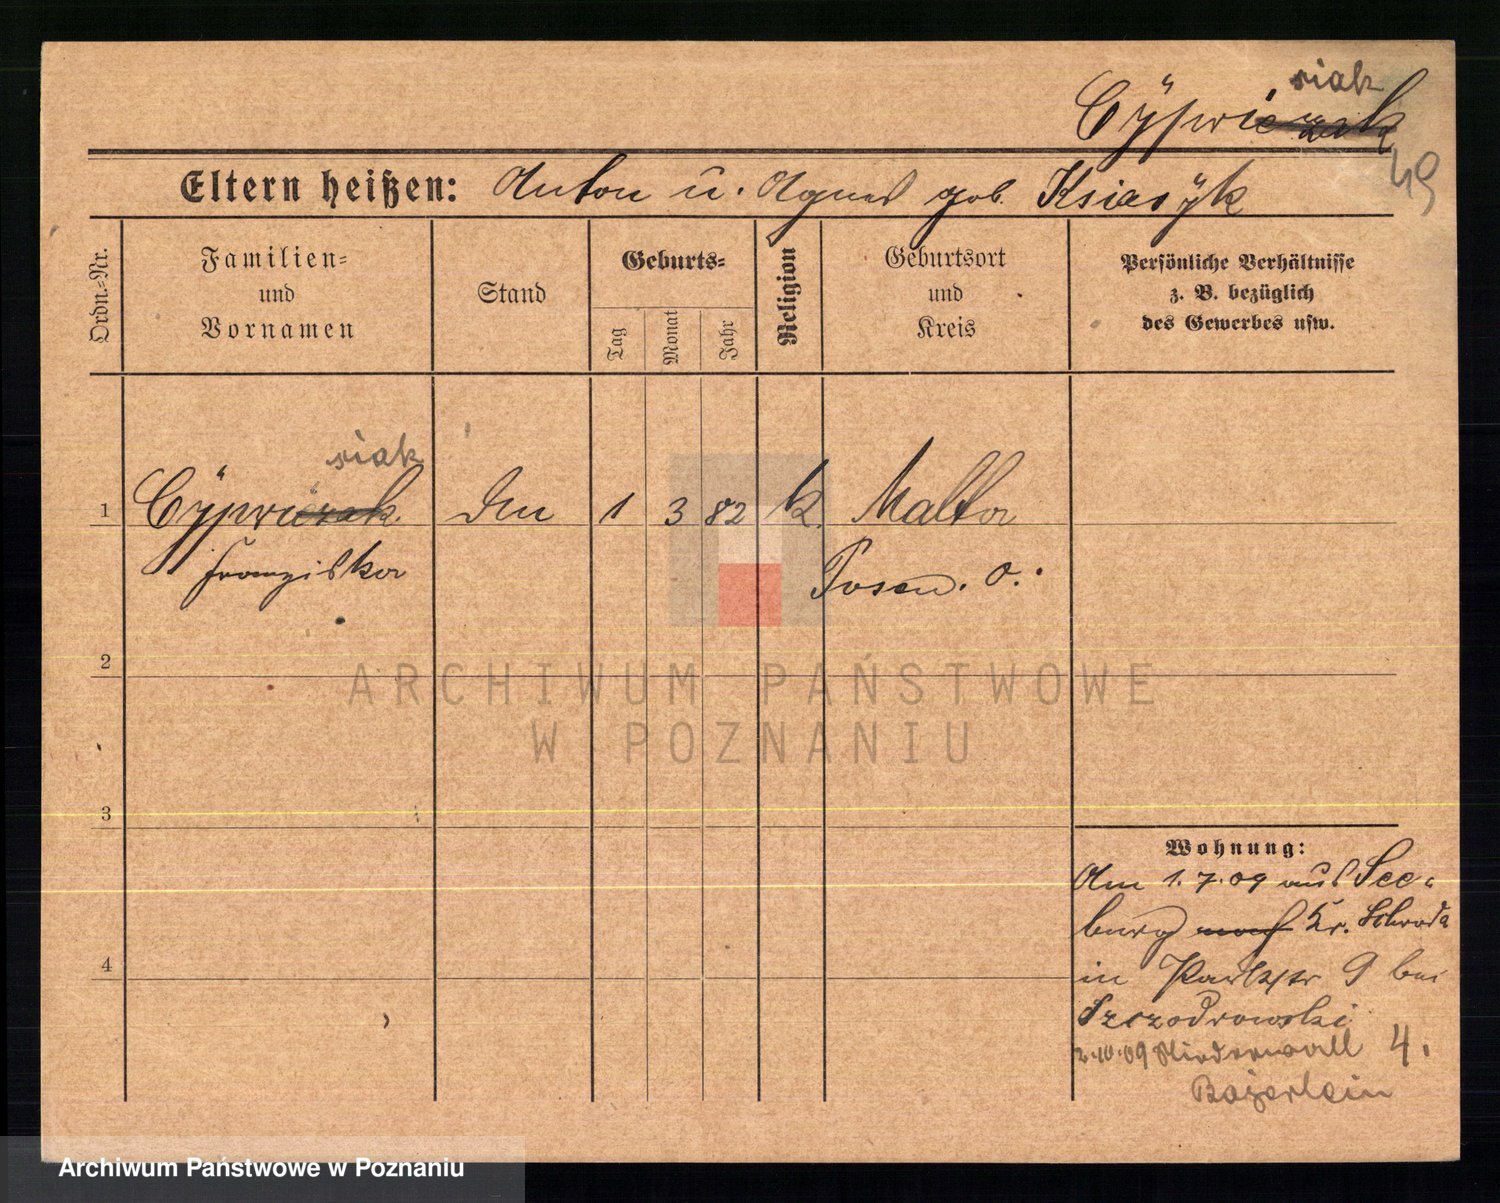 riak
Cÿpwiezak
49
Eltern heißen: Anton u. Agnes geb. Ksiasÿk
Ordn.-Nr.
Familien-
und
Vornamen
Stand
Geburts-
Tag
Monat
Jahr
Religion
Geburtsort
und
Kreis
Persönliche Verhältnisse
z. B. bezüglich
des Gewerbes usw.
siak
1 Cÿpwiezak 1 3 82 k. Malta
Franziska Posen. O.
2
ARCHIWUM PAŃSTWOWE
W POZNANIU
3
Wohnung:
Am 1.7.09 aus See-
burg nach Kr. Schroda
4
in Parkstr 9 bei
Szczodrowski
2.10.09 Niederwall 4.
Bajerlein
Archiwum Państwowe w Poznaniu